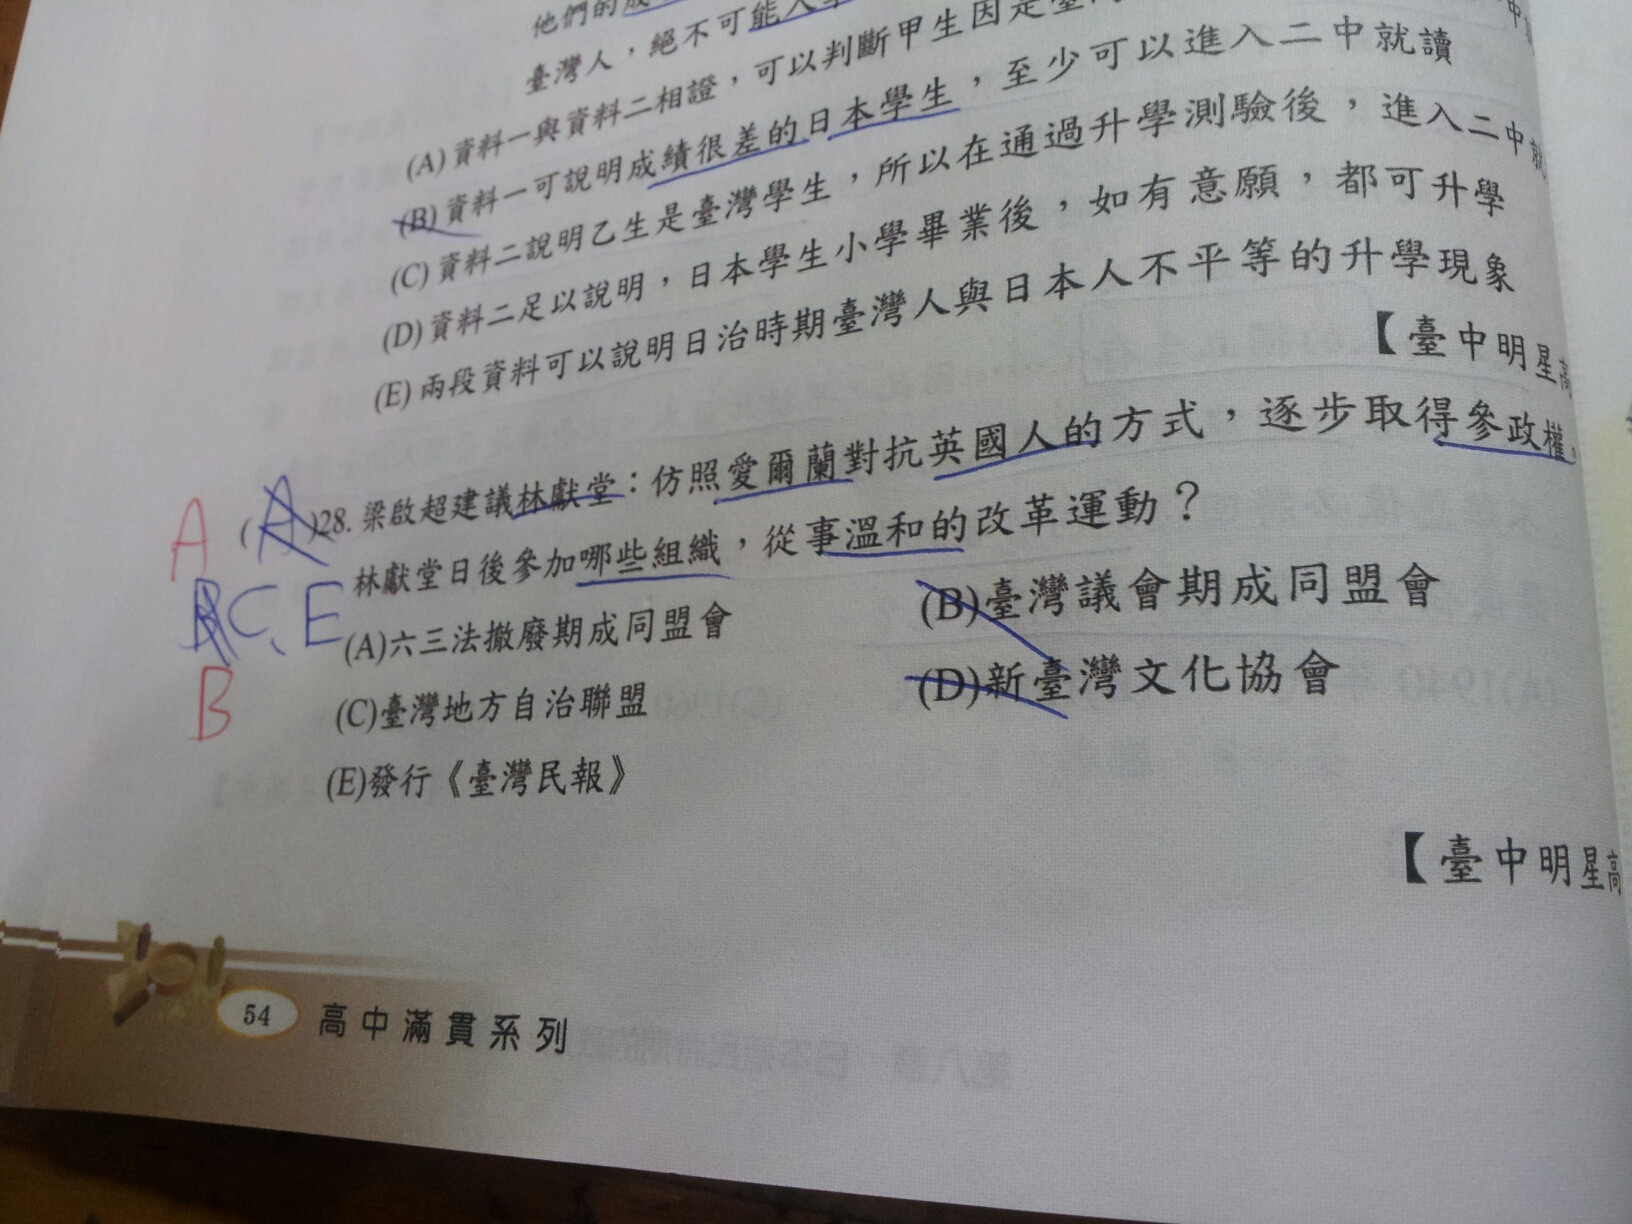 他們的成
臺灣人，絕不可能入學
(A) 資料一與資料二相證，可以判斷甲生因是臺灣
(B) 資料一可說明成績很差的日本學生，至少可以進入二中就讀
(C) 資料二說明乙生是臺灣學生，所以在通過升學測驗後，進入二中就
(D) 資料二足以說明，日本學生小學畢業後，如有意願，都可升學
(E) 兩段資料可以說明日治時期臺灣人與日本人不平等的升學現象
【臺中明星高
A
( A )28. 梁啟超建議林獻堂：仿照愛爾蘭對抗英國人的方式，逐步取得參政權。
林獻堂日後參加哪些組織，從事溫和的改革運動？
C、E
(A)六三法撤廢期成同盟會 (B)臺灣議會期成同盟會
B
(C)臺灣地方自治聯盟 (D)新臺灣文化協會
(E)發行《臺灣民報》
【臺中明星高
54 高中滿貫系列